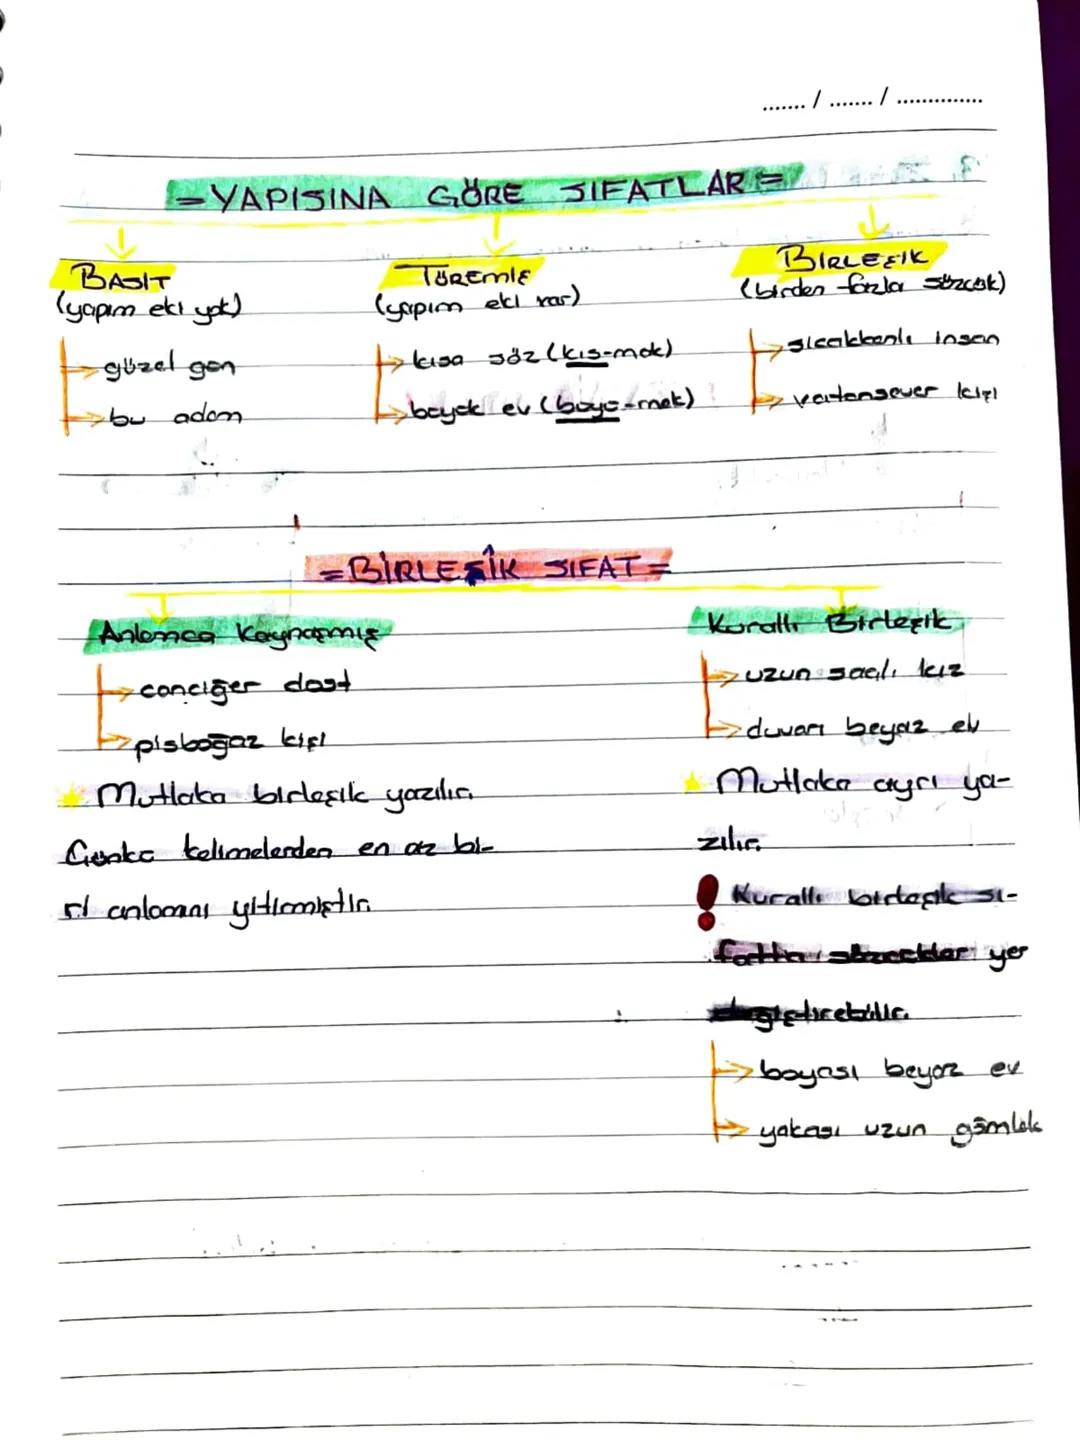 ....... / ....... / ..............
= YAPISINA GÖRE SIFATLAR =
BASİT
(yapım eki yok)
güzel gün
bu adam
TÜREMİŞ
(yapım eki var)
kısa söz (kıs-mak)
büyük ev (büyü-mek)
BİRLEŞİK
(birden fazla sözcük)
sıcakkanlı insan
vatansever kişi
= BİRLEŞİK SIFAT =
Anlamca Kaynaşmış
canciğer dost
pisboğaz kişi
Mutlaka birleşik yazılır.
Çünkü kelimelerden en az bi-
ri anlamını yitirmiştir.
Kurallı Birleşik
uzun saçlı kız
duvarı beyaz ev
Mutlaka ayrı ya-
zılır.
! Kurallı birleşik sı-
fatta sözcükler yer
değiştirebilir.
boyası beyaz ev
yakası uzun gömlek